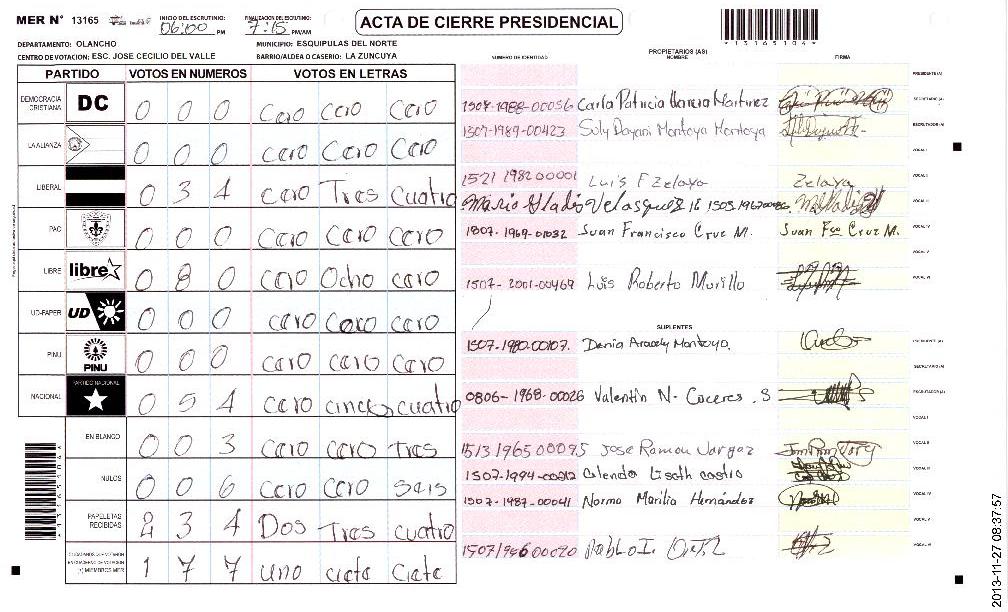 MER N° 13165
INICIO DEL ESCRUTINIO: 06:00 PM
FINALIZACION DEL ESCRUTINIO: 7:15 PM/AM
ACTA DE CIERRE PRESIDENCIAL
*13165104*
DEPARTAMENTO: OLANCHO
MUNICIPIO: ESQUIPULAS DEL NORTE
CENTRO DE VOTACION: ESC. JOSE CECILIO DEL VALLE
BARRIO/ALDEA O CASERIO: LA ZUNCUYA
PARTIDO VOTOS EN NUMEROS VOTOS EN LETRAS
DEMOCRACIA CRISTIANA DC 0 0 0 Cero Cero Cero
LA ALIANZA 0 0 0 Cero Cero Cero
LIBERAL 0 3 4 Cero Tres Cuatro
PAC 0 0 0 Cero Cero Cero
LIBRE libre 0 8 0 Cero Ocho Cero
UD-FAPER UD 0 0 0 Cero Cero Cero
PINU PINU 0 0 0 Cero Cero Cero
NACIONAL PARTIDO NACIONAL 0 5 4 Cero cinco cuatro
EN BLANCO 0 0 3 Cero Cero Tres
NULOS 0 0 6 Cero Cero Seis
PAPELETAS RECIBIDAS 2 3 4 Dos Tres Cuatro
CIUDADANOS QUE VOTARON EN CUADERNO DE VOTACION (+) MIEMBROS MER 1 7 7 uno ciete Ciete
NUMERO DE IDENTIDAD
PROPIETARIOS (AS)
NOMBRE
FIRMA
PRESIDENTE (A)
1507-1988-00056 Carla Patricia Herrera Martinez SECRETARIO (A)
1507-1989-00423 Suly Dayani Montoya Montoya ESCRUTADOR (A)
VOCAL I
1521 1982 00001 Luis F Zelaya Zelaya VOCAL II
Maria Gladis Velasquez VOCAL III
1807-1969-01032 Juan Francisco Cruz M. Juan Fco Cruz M. VOCAL IV
VOCAL V
1507-2001-00469 Luis Roberto Murillo VOCAL VI
SUPLENTES
1507-1980-00107. Denia Aracely Montoya. PRESIDENTE (A)
SECRETARIO (A)
0806-1968-00026 Valentin N- Caceres. S ESCRUTADOR (A)
VOCAL I
1513 1965 00095 Jose Ramon Vargaz VOCAL II
1507-1994-00012 Liseth Castro VOCAL III
1507-1987-00041 Norma Marilia Hernández VOCAL IV
VOCAL V
1507 1966 00020 Pablo I. Ortiz VOCAL VI
2013-11-27 08:37:57